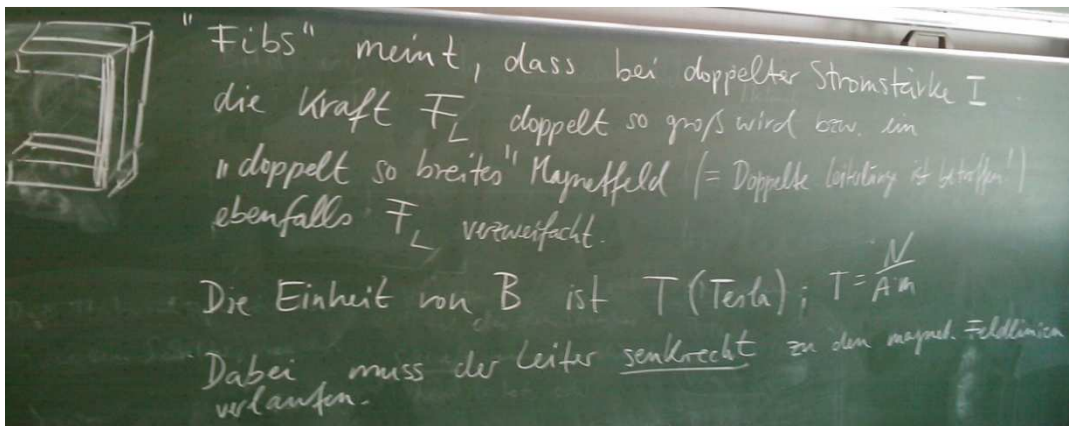 "Fibs" meint, dass bei doppelter Stromstärke I
die Kraft F_L doppelt so groß wird bzw. ein
„doppelt so breites" Magnetfeld (= Doppelte Leiterlänge ist betroffen!)
ebenfalls F_L verzweifacht.
Die Einheit von B ist T (Tesla); T = N/A·m
Dabei muss der Leiter senkrecht zu den magnet. Feldlinien
verlaufen.